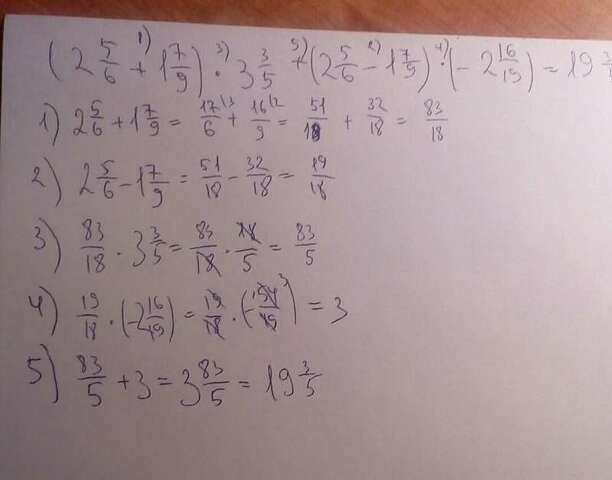 (2 5/6 1) + 1 7/9) 3) · 3 3/5 5) + (2 5/6 2) - 1 7/9) 4) · (-2 16/19) = 19 3/
1) 2 5/6 + 1 7/9 = 17\3/6 + 16\2/9 = 51/18 + 32/18 = 83/18
2) 2 5/6 - 1 7/9 = 51/18 - 32/18 = 19/18
3) 83/18 · 3 3/5 = 83/18 · 18/5 = 83/5
4) 19/18 · (-2 16/19) = 19/18 · (-54/19 3) = 3
5) 83/5 + 3 = 3 83/5 = 19 3/5